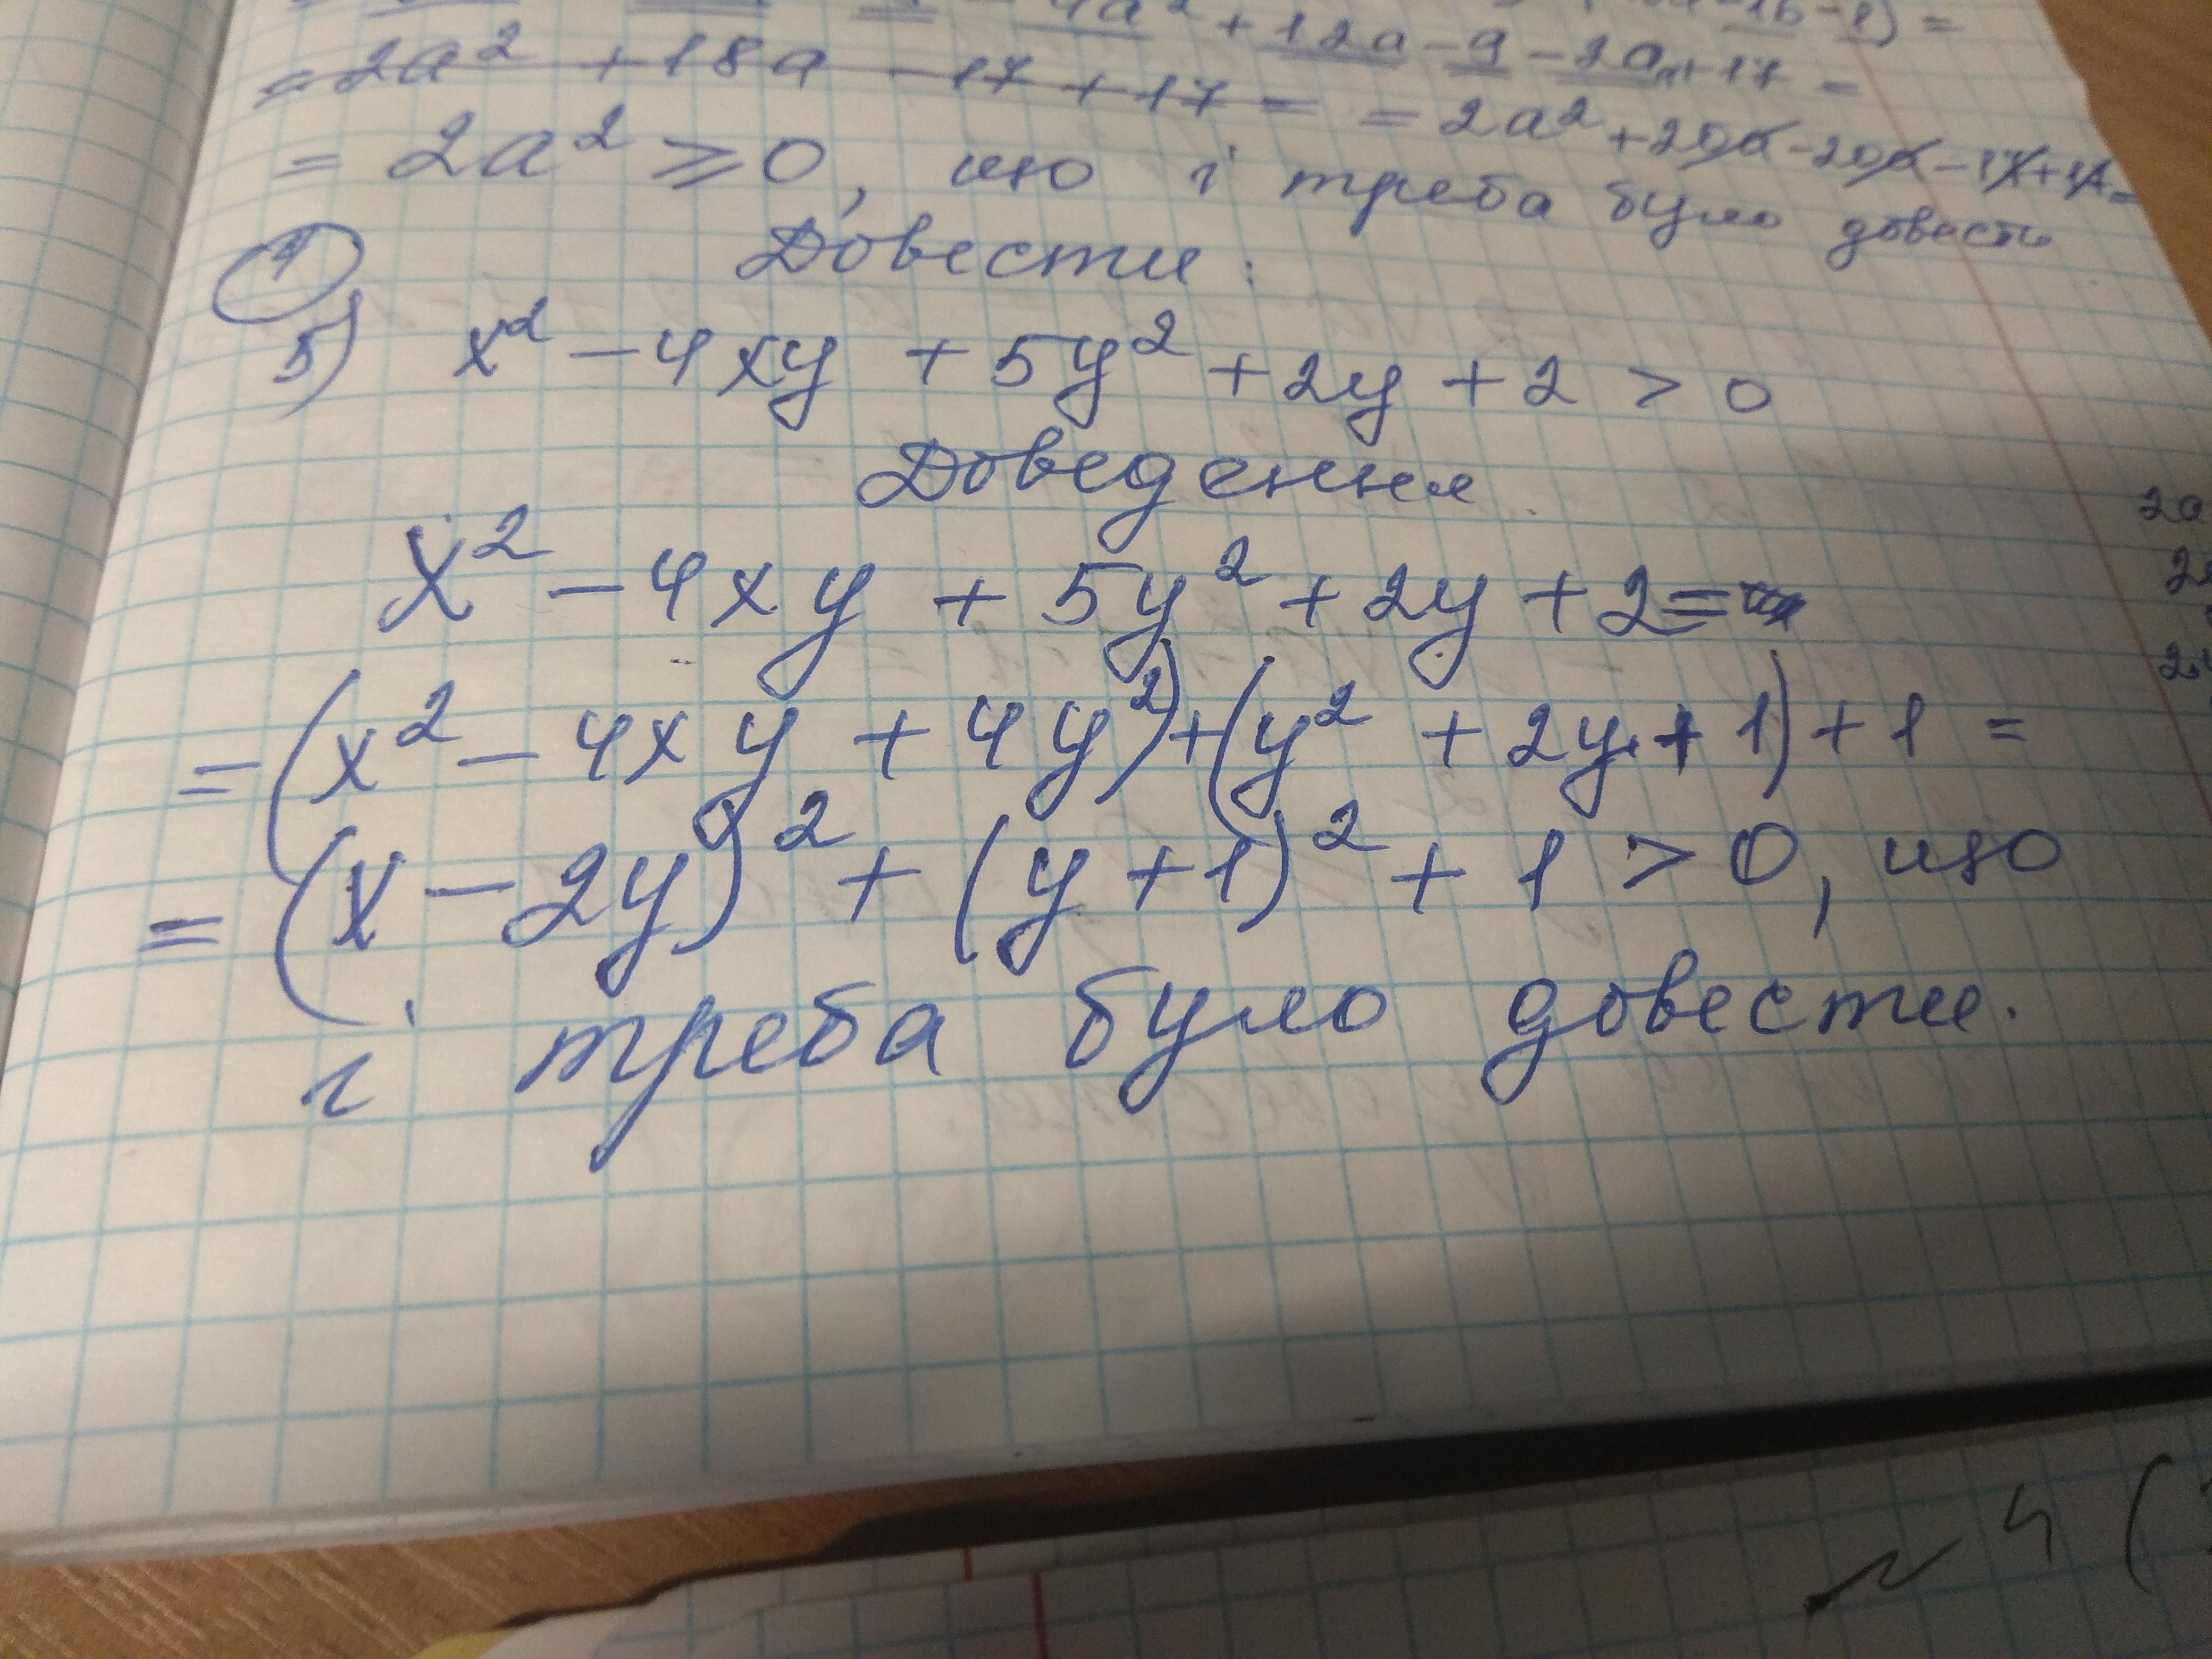 4a² + 12a - 9 - 2a + 17 =
= 2a² + 18a - 17 + 17 = = 2a² + 20a - 20a - 17 + 17 =
= 2a² ⩾ 0, що і треба було довести
Довести:
5) x² - 4xy + 5y² + 2y + 2 > 0
Доведення
x² - 4xy + 5y² + 2y + 2 =
= (x² - 4xy + 4y²) + (y² + 2y + 1) + 1 =
= (x - 2y)² + (y + 1)² + 1 > 0, що
і треба було довести.
2a
4 (